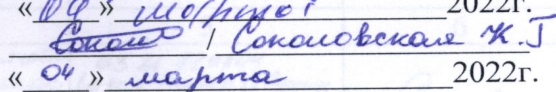 «04» марта 2022г.
/ Соколовская К.Г
«04» марта 2022г.